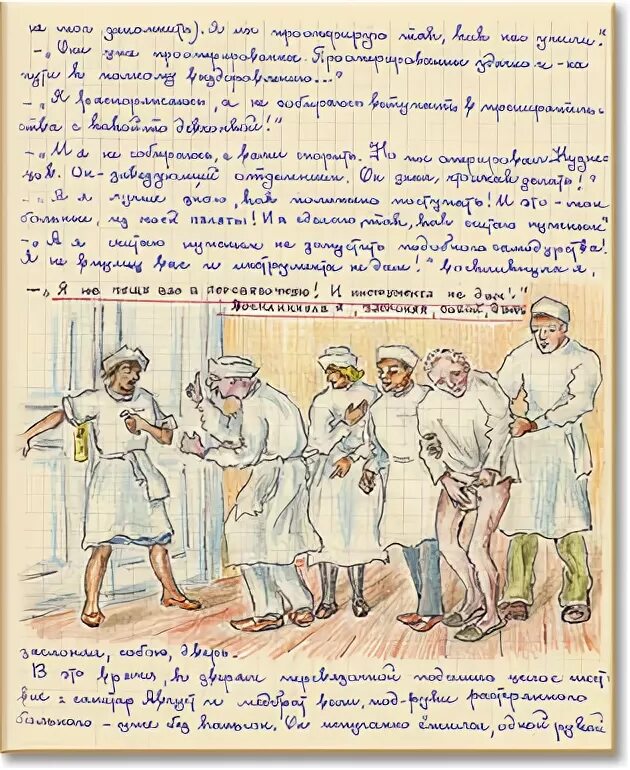 не мог запомнить). Я их прооперирую так, как нас учили."
–„Они уже прооперированы. Прооперированы удачно и – на
пути к полному выздоровлению...?
–„Я распоряжаюсь, а не собираюсь вступать в
с какой-то девчонкой!"
–„И я не собираюсь, с вами спорить. Но их оперировал Кузне-
цов. Он – заведующий отделением. Он знал, что как делать!?
–„А я лучше знаю, как положено поступать! И это – мои
больные, из моей палаты! И я сделаю так, как считаю нужным"
–„А я считаю нужным не допустить подобного самодурства!
Я не впущу вас и инструмента не дам!" воскликнула я,
–„Я не пущу вас в перевязочную! И инструмента не дам!"
Воскликнула я, заслоняя, собой, дверь
заслоняя, собою, дверь.
В это время, к дверям перевязочной подошло целое шест-
вие: санитар Август и медбрат вели, под-руки растерянного
больного – уже без кальсон. Он испуганно ёжился, одной рукой